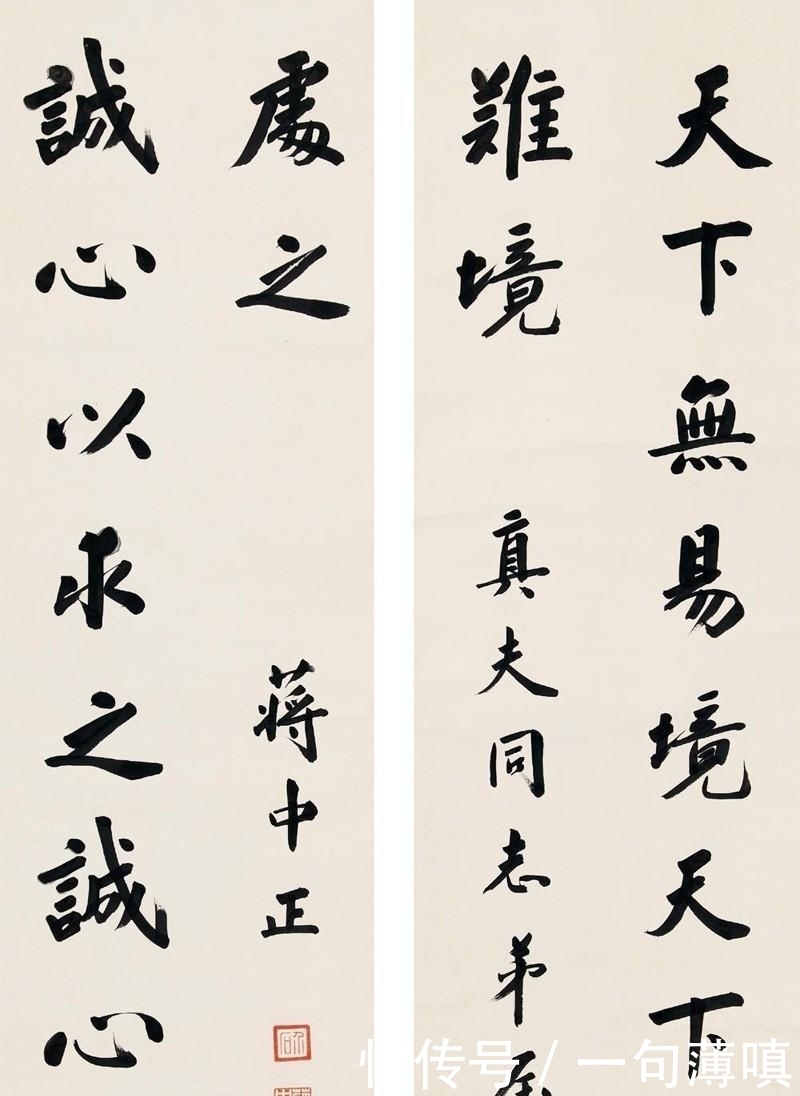 天下無易境天下
難境
真夫同志弟
誠心以求之誠心
處之
蔣中正
介石
快传号 / 一句薄嗔